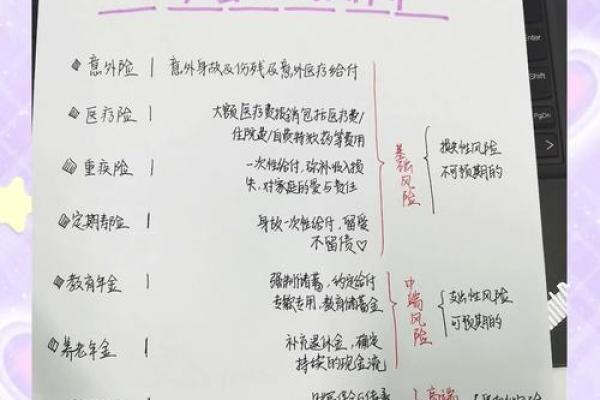 意外险 | 意外身故及伤残及意外医疗给付
医疗险 | 大额医疗费报销包括医疗费/
住院费/自费特效药等费用
重疾险 | 一次性给付,弥补收入损
失,对家庭的爱与责任
定期寿险 | 身故一次性给付,留爱
不留债♡
基础风险
损失性风险
不可预期的
教育年金 | 强制储蓄,约定给付
专款专用,教育储蓄金
养老年金 | 补充退休金,确定
持续的现金流
中端风险
支出性风险
可预期的
高端
Enter
Shift
PgDn